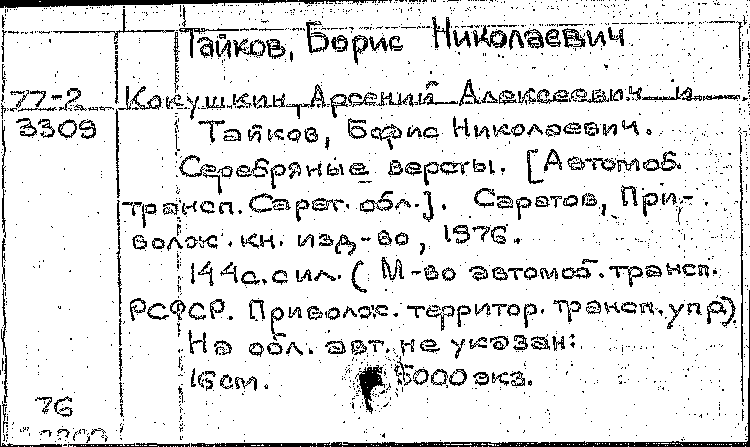 Тайков, Борис Николаевич
77-2 Кокушкин, Арсений Алексеевич и
3309 Тайков, Борис Николаевич.
Серебряные версты. [Автомоб.
трансп. Сарат. обл.]. Саратов, При-
волж. кн. изд-во, 1976.
144с. с ил. ( М-во автомоб. трансп.
РСФСР. Приволж. территор. трансп. упр)
На обл. авт. не указан:
16см. 5000 экз.
76